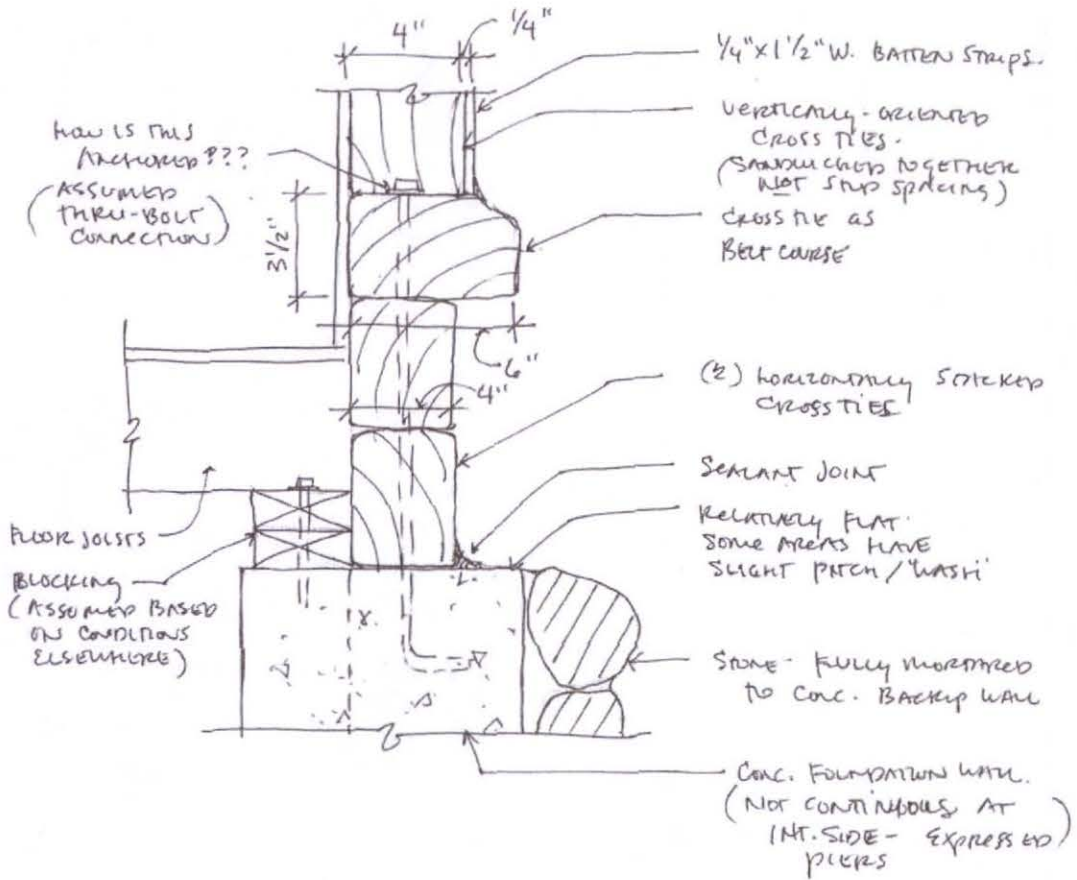 4"
1/4"
1/4" X 1 1/2" W. BATTEN STRIPS.
VERTICALLY-ORIENTED
CROSS TIES.
(SANDWICHED TOGETHER
NOT STUD SPACING)
CROSS TIE AS
BELT COURSE
HOW IS THIS
ANCHORED???
(ASSUMED
THRU-BOLT
CONNECTION)
3 1/2"
6"
4"
(2) HORIZONTALLY STACKED
CROSS TIES
SEALANT JOINT
RELATIVELY FLAT.
SOME AREAS HAVE
SLIGHT PITCH/'WASH'
FLOOR JOISTS
BLOCKING
(ASSUMED BASED
ON CONDITIONS
ELSEWHERE)
STONE - FULLY MORTARED
TO CONC. BACKUP WALL
CONC. FOUNDATION WALL.
(NOT CONTINUOUS AT
INT. SIDE - EXPRESSED
PIERS)